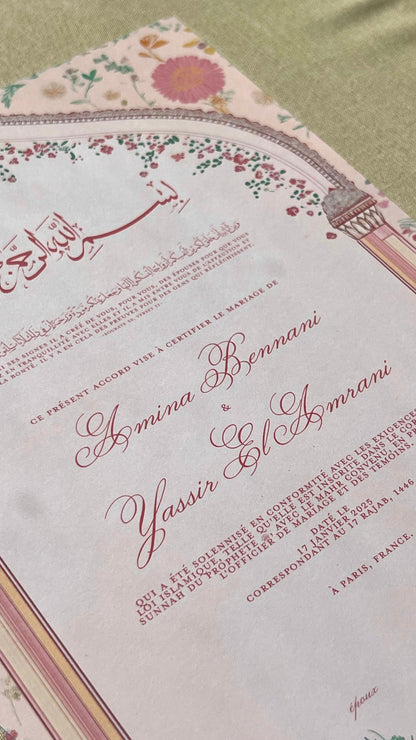 بسم الله الرحمن
SI SES SIGNES IL A CRÉÉ DE VOUS, POUR VOUS, DES ÉPOUSES POUR QUE VOUS
EN TRANQUILLITÉ AVEC ELLES ET IL A MIS ENTRE VOUS DE L'AFFECTION ET
LA BONTÉ. IL Y A EN CELA DES PREUVES POUR DES GENS QUI RÉFLÉCHISSENT.
CE PRÉSENT ACCORD VISE À CERTIFIER LE MARIAGE DE
Amina Bennani
&
Yassir El Amrani
QUI A ÉTÉ SOLENNISÉ EN CONFORMITÉ AVEC LES EXIGENCE
LOI ISLAMIQUE, TELLE QU'ELLE EST INSCRITE DANS LE
SUNNAH DU PROPHÈTE ﷺ AVEC LE MAHR CONTENU EN
L'OFFICIER DE MARIAGE ET DES TÉMOINS.
DATÉ LE
17 JANVIER 2025
CORRESPONDANT AU 17 RAJAB, 1446
À PARIS, FRANCE.
époux